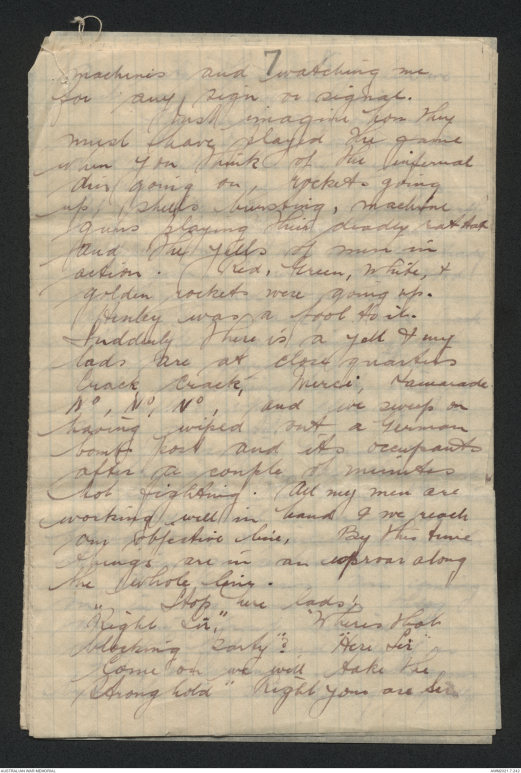 7
machines and watching me
for any sign or signal.
Just imagine how they
must have played the game
when you think of the infernal
din going on, rockets going
up, shells bursting, machine
guns playing their deadly rat tat
and the yells of men in
action. Red, Green, White, &
golden rockets were going up.
Henley was a fool to it.
Suddenly there is a yell & my
lads are at close quarters
Crack Crack, Merci, Kamarade
No, No, No, and we sweep on
having wiped out a German
bomb post and its occupants
after a couple of minutes
hot fighting. All my men are
working well in hand & we reach
our objective line. By this time
things are in an uproar along
the whole line.
"Stop here lads!
"Right Sir," "Where's that
blocking party"? "Here Sir"
Come on we will take the
strong hold" Right you are Sir
AUSTRALIAN WAR MEMORIAL